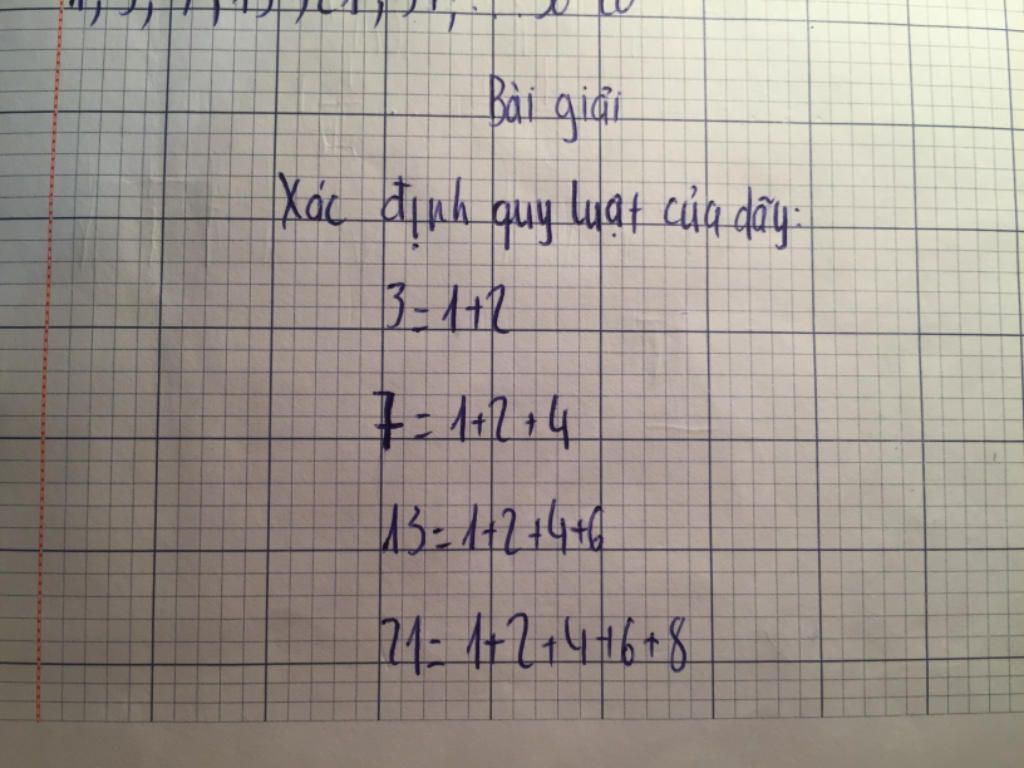 Bài giải
Xác định quy luật của dãy:
3 = 1+2
7 = 1+2+4
13 = 1+2+4+6
21 = 1+2+4+6+8